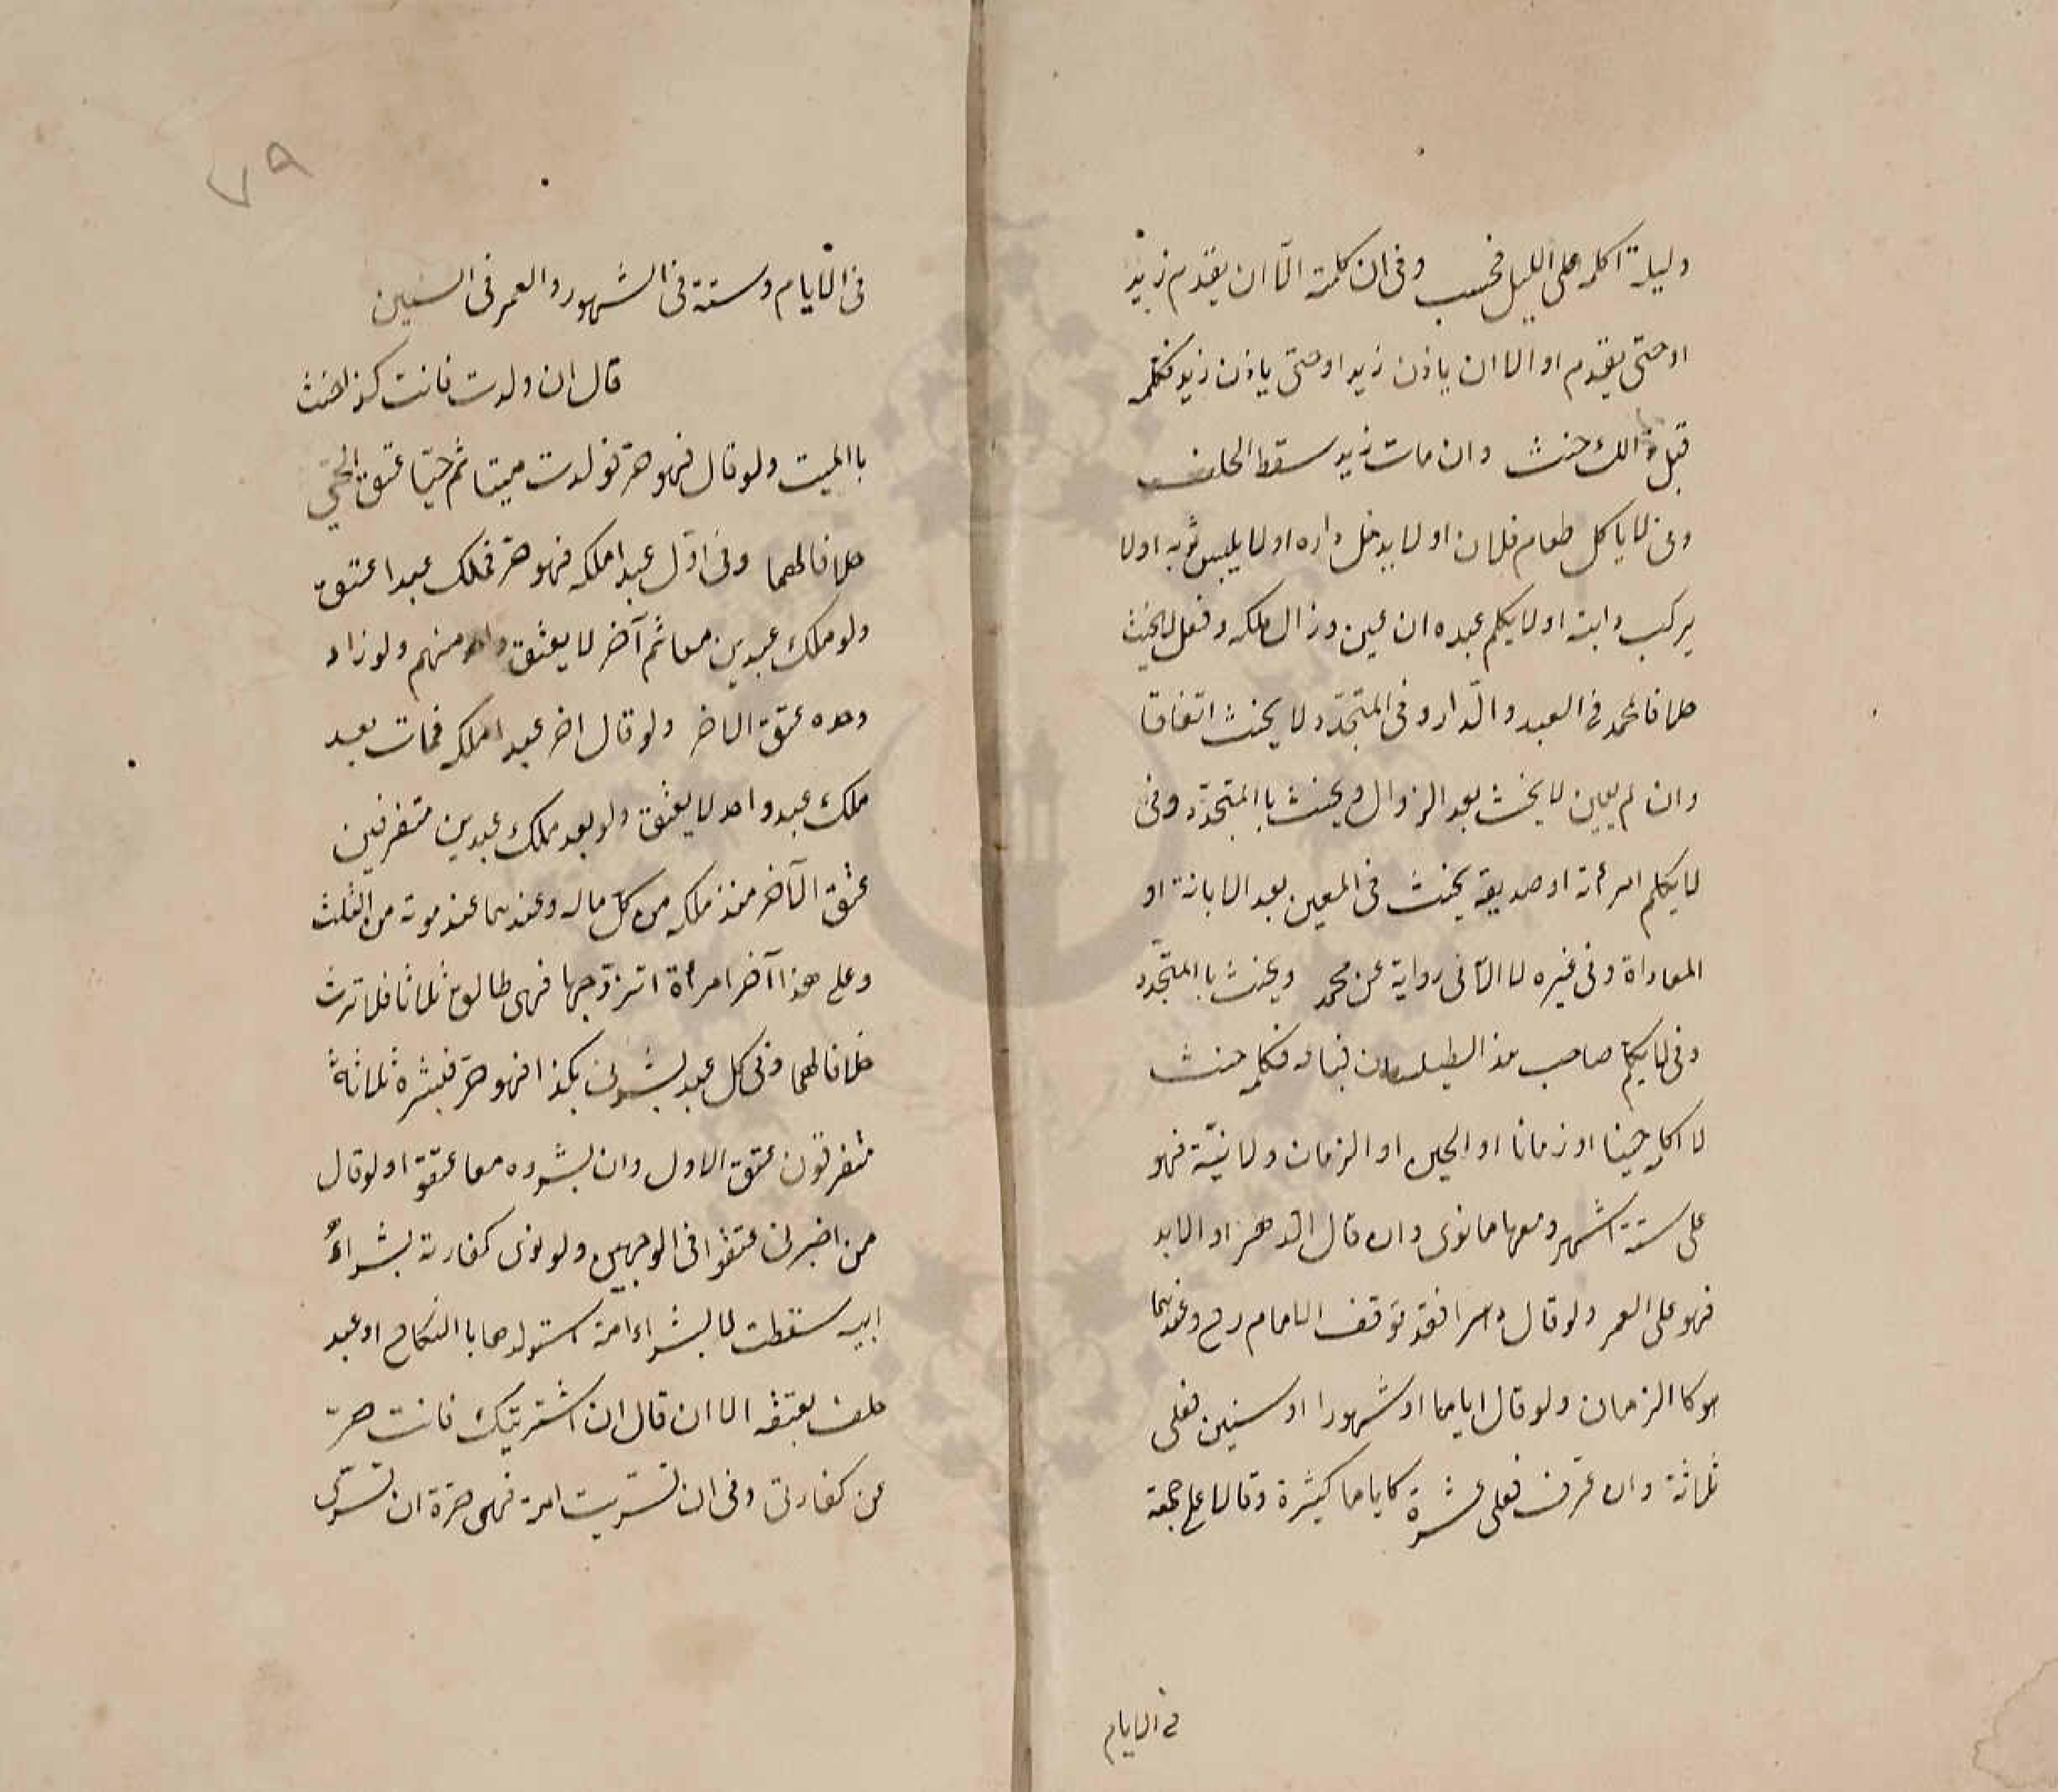 وليلة اكلمه على الليل فحسب وفى ان كلمته الّا ان يقدم زيد
او حتى يقدم او الا ان ياذن زيد او حتى ياذن زيد فكلمه
قبل ذالك حنث وان مات زيد سقط الحلف
وفى لا ياكل طعام فلان او لا يدخل داره او لا يلبس ثوبه اولا
يركب دابته او لا يكلم عبده ان عين وزال ملكه وفعل لا يحنث
خلافا لمحمد فى العبد والدّار وفى المتجدّد لا يحنث اتفاقا
وان لم يعين لا يحنث بعد الزوال ويحنث باالمتجدّد وفى
لا يكلم امرأته او صديقه يحنث فى المعين بعد الابانة او
المعاداة وفى غيره لا الّا فى رواية عن محمد ويحنث باالمتجدد
وفى لا يكلم صاحب هذ الطيلسان فباعه فكلمه حنث
لا اكلمه حينا او زمانا او الحين او الزمان ولا نيّة فهو
على ستة اشهر ومعها ما نوى وان قال الدّهر او الابد
فهو على العمر ولو قال دهرا فقد توقف الامام رح وعندهما
هو كا الزمان ولو قال اياما او شهورا او سنين فعلى
ثلاثة وان عرّف فعلى عشرة كاياما كثيرة وقالا على جمعة
فى الايام
٧٩
فى الايام وستة فى الشهور والعمر فى السنين
قال ان ولدت فانت كذا حنث
باالميت ولو قال فهو حر فولدت ميتا ثم حيّا عتق الحيّ
خلافا لهما وفى اوّل عبد املكه فهو حرّ فملك عبدا عتق
ولو ملك عبدين معا ثم آخر لا يعتق واحد منهم ولو زاد
وحده عتق الاخر ولو قال اخر عبد املكه فمات بعد
ملك عبد واحد لا يعتق ولو بعد ملك عبدين متفرقين
عتق الآخر منذ ملكه من كل ماله وعندهما عند موته من الثلث
وعلى هذا آخر امرأة اتزوّجها فهى طالق ثلاثا فلا ترث
خلافا لهما وفى كل عبد بشرنى بكذا فهو حرّ فبشره ثلاثة
متفرقون عتق الاول وان بشروه معا عتقوا ولو قال
من اخبرنى عتقوا فى الوجهين ولو نوى كفارته بشراء
ابيه سقطت لا بشراء امة استولدها باالنكاح او عبد
حلف بعتقه الا ان قال ان اشتريتك فانت حر
عن كفارتى وفى ان تسريت امة فهى حرة ان تسرّى